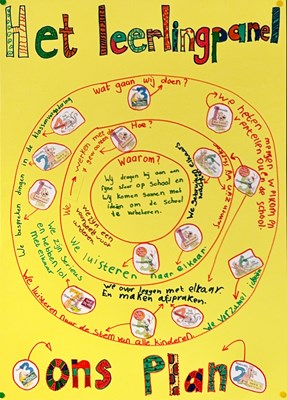 Het leerlingpanel
wat gaan wij doen?
We heten mensen welkom en
vertellen over de school.
We verzamelen ideeën
We luisteren naar de stem van alle kinderen
We bespreken dingen in de klassenvergadering
Hoe?
We werken met
We luisteren naar elkaar.
we overleggen met elkaar.
En maken afspraken.
We zijn serieus
en hebben lol
met elkaar
We zijn een
voorbeeld voor
anderen
Waarom?
Wij dragen bij aan een
fijne sfeer op school en
Wij komen samen met
ideeën om de school
te verbeteren.
ons Plan